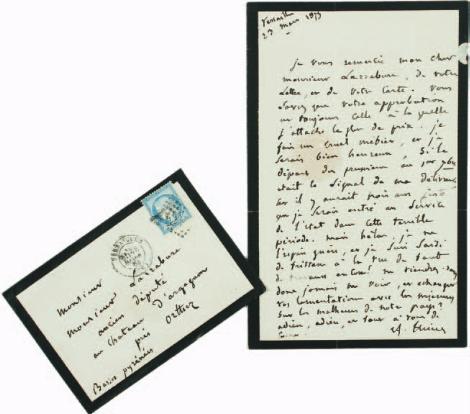 Versailles
23 mars 1873
je vous remercie mon cher
monsieur Larrabure, de votre
lettre, et de votre carte. Vous
savez que votre approbation
est toujours celle à laquelle
j'attache le plus de prix. je
fais un cruel métier, et je
serais bien heureux, si le
départ des prussiens au
était le signal de ma délivrance
il y aurait trois ans
que je serais entré au service
de l'état dans cette terrible
période. mais hélas, je ne
l'espère guère, et je suis saisi
de tristesse à la vue de tant
de encore. ne viendrez-vous
donc jamais me voir, et échanger
vos lamentations avec les miennes
sur les malheurs de notre pays?
adieu, adieu, et tout à vous de
A. Thiers
Monsieur
Monsieur Larrabure
ancien député
au chateau d'
près Orthez
Basses pyrénées